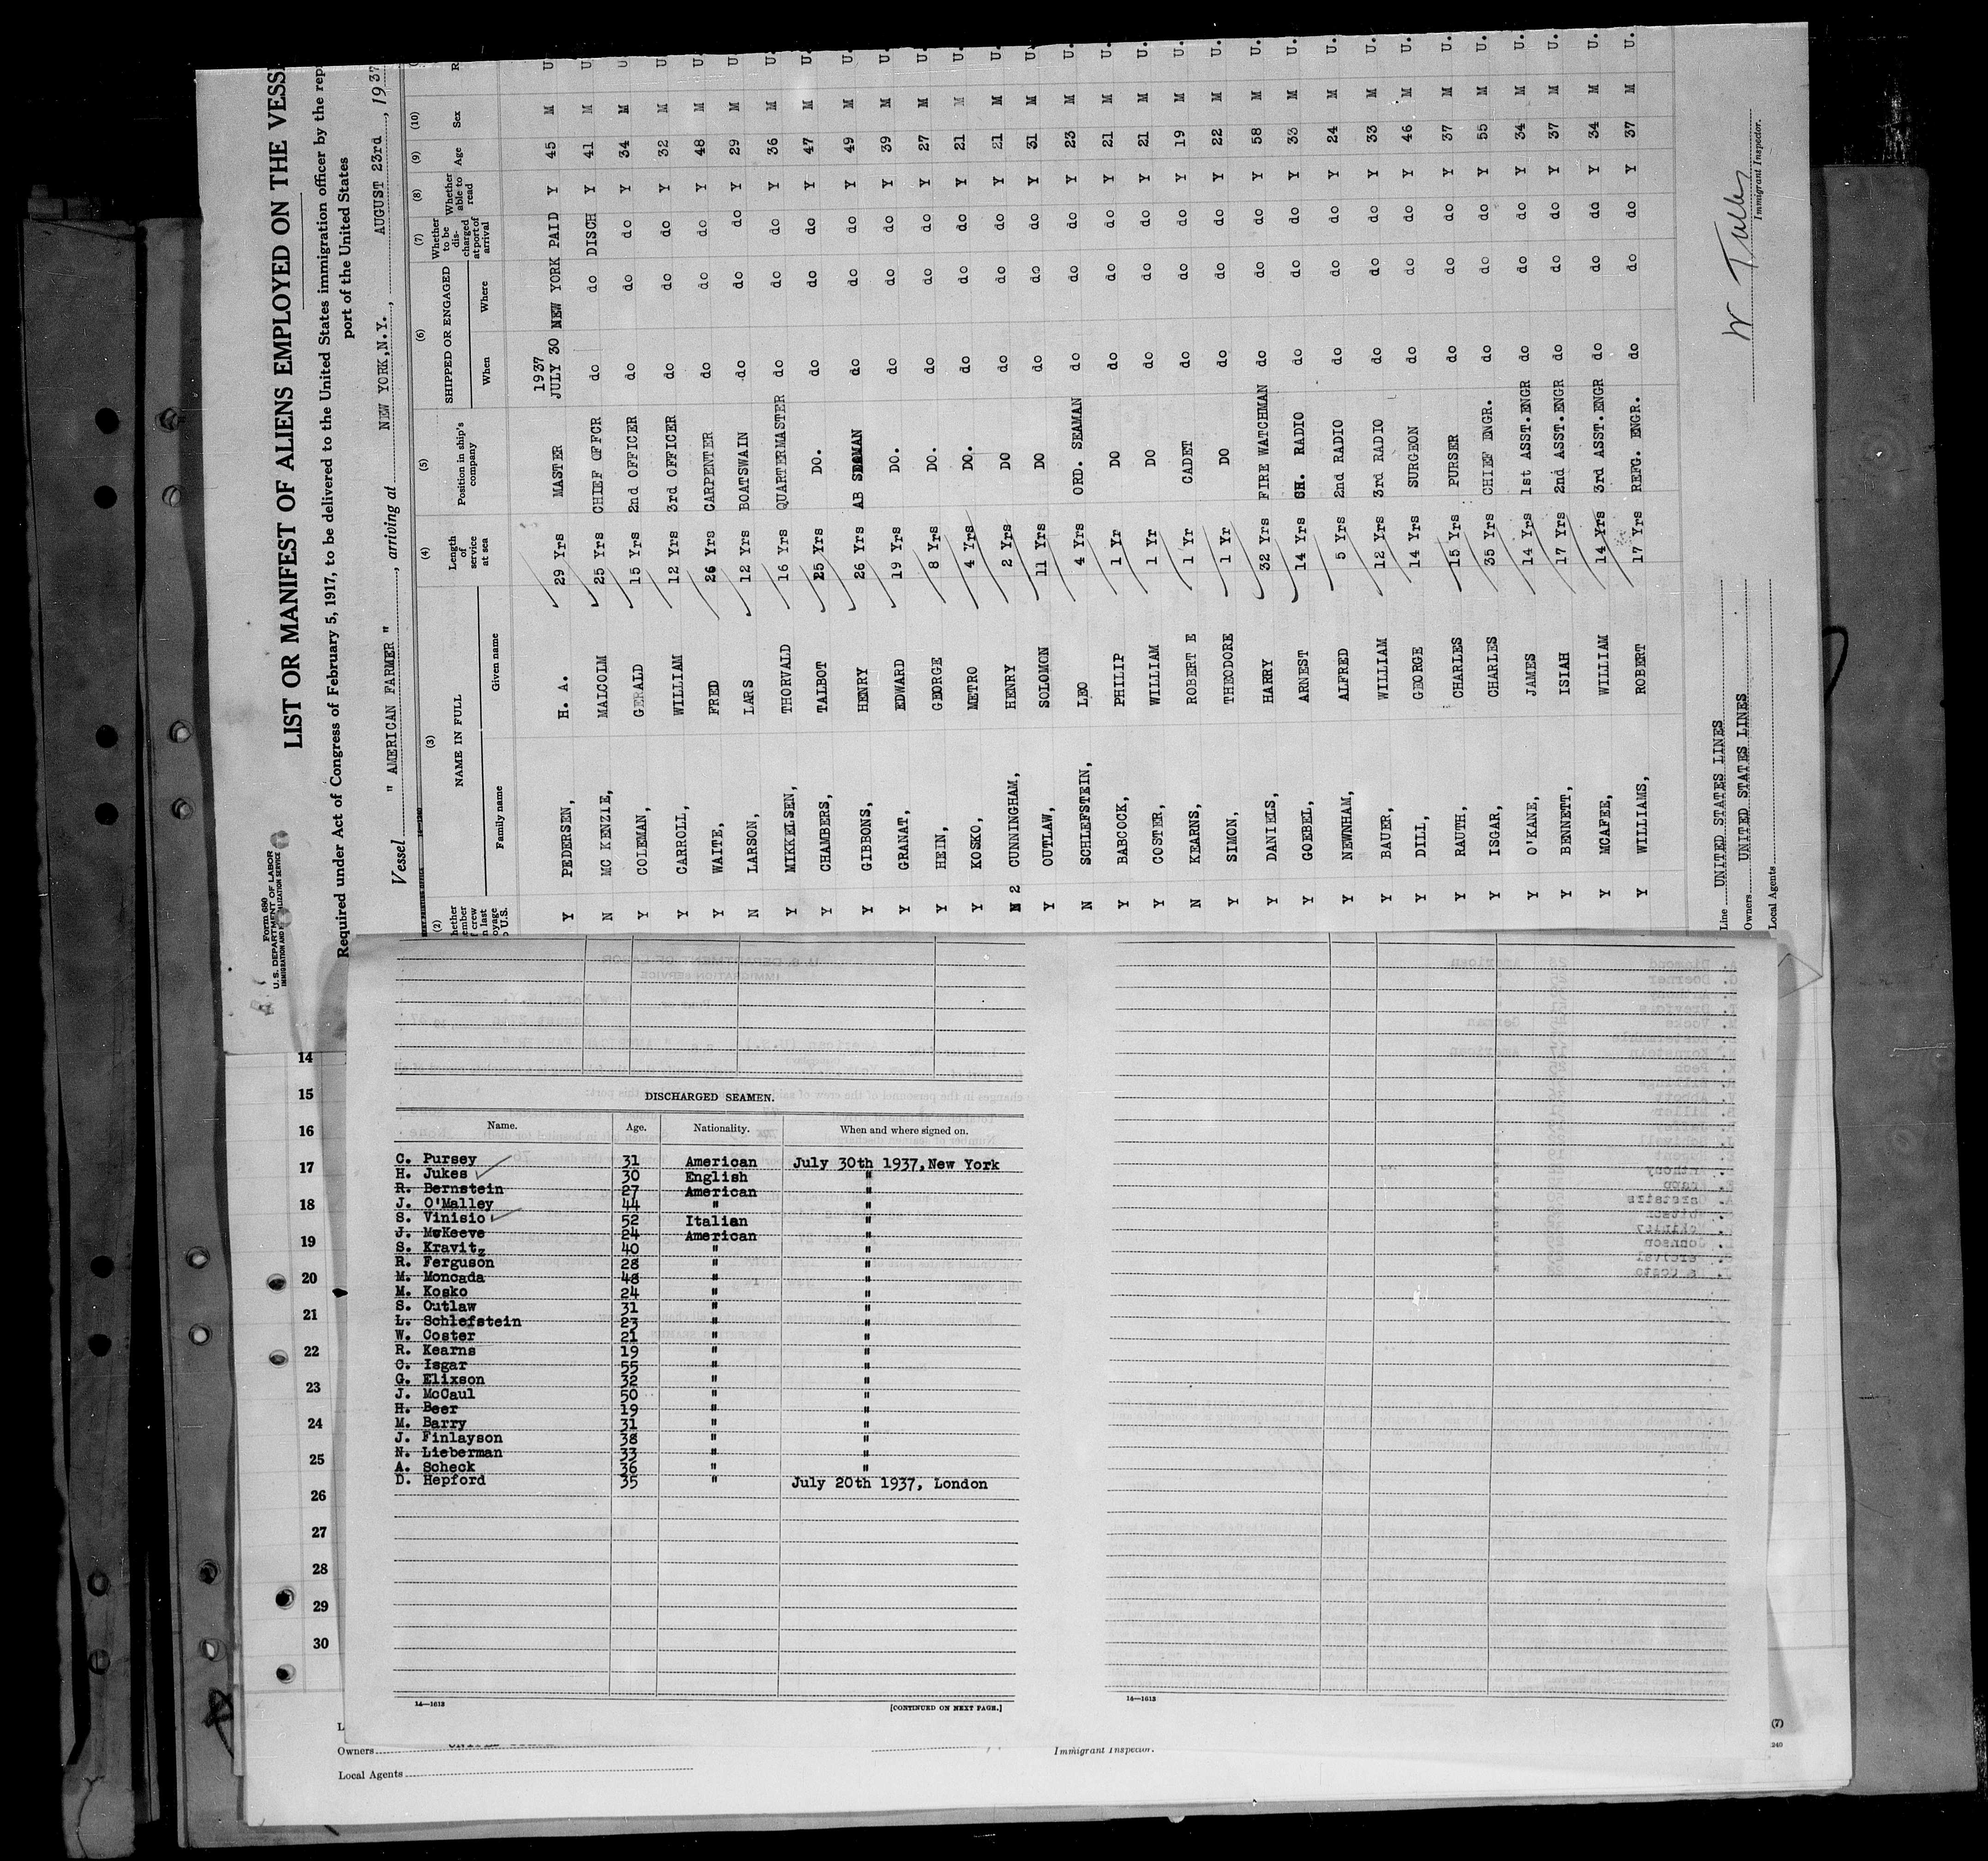 Form 680
U. S. DEPARTMENT OF LABOR
LIST OR MANIFEST OF ALIENS EMPLOYED ON THE VESS
Required under Act of Congress of February 5, 1917, to be delivered to the United States immigration officer by the rep
port of the United States
Vessel " AMERICAN FARMER ", arriving at NEW YORK,N.Y., AUGUST 23rd, 1937
(2) (3) (4) (5) (6) (7) (8) (9) (10)
NAME IN FULL
Family name Given name
Length of service at sea
Position in ship's company
SHIPPED OR ENGAGED
When Where
Whether to be discharged at port of arrival
Whether able to read
Age
Sex
1937
Y PEDERSEN, H. A. 29 Yrs MASTER JULY 30 NEW YORK PAID Y 45 M U.
N MC KENZIE, MALCOLM 25 Yrs CHIEF OFFCR do do DISCH Y 41 M U.
Y COLEMAN, GERALD 15 Yrs 2nd OFFICER do do do Y 34 M U.
Y CARROLL, WILLIAM 12 Yrs 3rd OFFICER do do do Y 32 M U.
Y WAITE, FRED 26 Yrs CARPENTER do do do Y 48 M U.
N LARSON, LARS 12 Yrs BOATSWAIN do do do Y 29 M U.
Y MIKKELSEN, THORVALD 16 Yrs QUARTERMASTER do do do Y 36 M U.
Y CHAMBERS, TALBOT 25 Yrs DO. do do do Y 47 M U.
Y GIBBONS, HENRY 26 Yrs AB SEAMAN do do do Y 49 M U.
Y GRANAT, EDWARD 19 Yrs DO. do do do Y 39 M U.
Y HEIN, GEORGE 8 Yrs DO. do do do Y 27 M U.
Y KOSKO, METRO 4 Yrs DO. do do do Y 21 M U.
N 2 CUNNINGHAM, HENRY 2 Yrs DO do do do Y 21 M U.
Y OUTLAW, SOLOMON 11 Yrs DO do do do Y 31 M U.
N SCHLEFSTEIN, LEO 4 Yrs ORD. SEAMAN do do do Y 23 M U.
Y BABCOCK, PHILIP 1 Yr DO do do do Y 21 M U.
Y COSTER, WILLIAM 1 Yr DO do do do Y 21 M U.
N KEARNS, ROBERT E 1 Yr CADET do do do Y 19 M U.
Y SIMON, THEODORE 1 Yr DO do do do Y 22 M U.
Y DANIELS, HARRY 32 Yrs FIRE WATCHMAN do do do Y 58 M U.
Y GOEBEL, ARNEST 14 Yrs CH. RADIO do do do Y 33 M U.
Y NEWNHAM, ALFRED 5 Yrs 2nd RADIO do do do Y 24 M U.
Y BAUER, WILLIAM 12 Yrs 3rd RADIO do do do Y 33 M U.
Y DILL, GEORGE 14 Yrs SURGEON do do do Y 46 M U.
Y RAUTH, CHARLES 15 Yrs PURSER do do do Y 37 M U.
Y ISGAR, CHARLES 35 Yrs CHIEF ENGR. do do do Y 55 M U.
Y O'KANE, JAMES 14 Yrs 1st ASST.ENGR do do do Y 34 M U.
Y BENNETT, ISIAH 17 Yrs 2nd ASST.ENGR do do do Y 37 M U.
Y MCAFEE, WILLIAM 14 Yrs 3rd ASST.ENGR do do do Y 34 M U.
Y WILLIAMS, ROBERT 17 Yrs REFG. ENGR. do do do Y 37 M U.
Line UNITED STATES LINES
Owners UNITED STATES LINES
Local Agents
Immigrant Inspector.
14
15
16
17
18
19
20
21
22
23
24
25
26
27
28
29
30
DISCHARGED SEAMEN.
Name. Age. Nationality. When and where signed on.
C. Pursey 31 American July 30th 1937,New York
H. Jukes 30 English "
R. Bernstein 27 American "
J. O'Malley 44 " "
S. Vinisio 52 Italian "
J. McKeeve 24 American "
S. Kravitz 40 " "
R. Ferguson 28 " "
M. Moncada 48 " "
M. Kosko 24 " "
S. Outlaw 31 " "
L. Schlefstein 23 " "
W. Coster 21 " "
R. Kearns 19 " "
C. Isgar 55 " "
G. Elixson 32 " "
J. McCaul 50 " "
H. Beer 19 " "
M. Barry 31 " "
J. Finlayson 38 " "
N. Lieberman 33 " "
A. Scheck 36 " "
D. Hepford 35 " July 20th 1937, London
14—1613
[CONTINUED ON NEXT PAGE.]
14—1613
(7)
Owners
Immigrant Inspector.
Local Agents